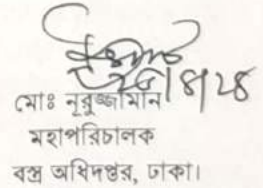 মোঃ নূরুজ্জামান
মহাপরিচালক
বস্ত্র অধিদপ্তর, ঢাকা।